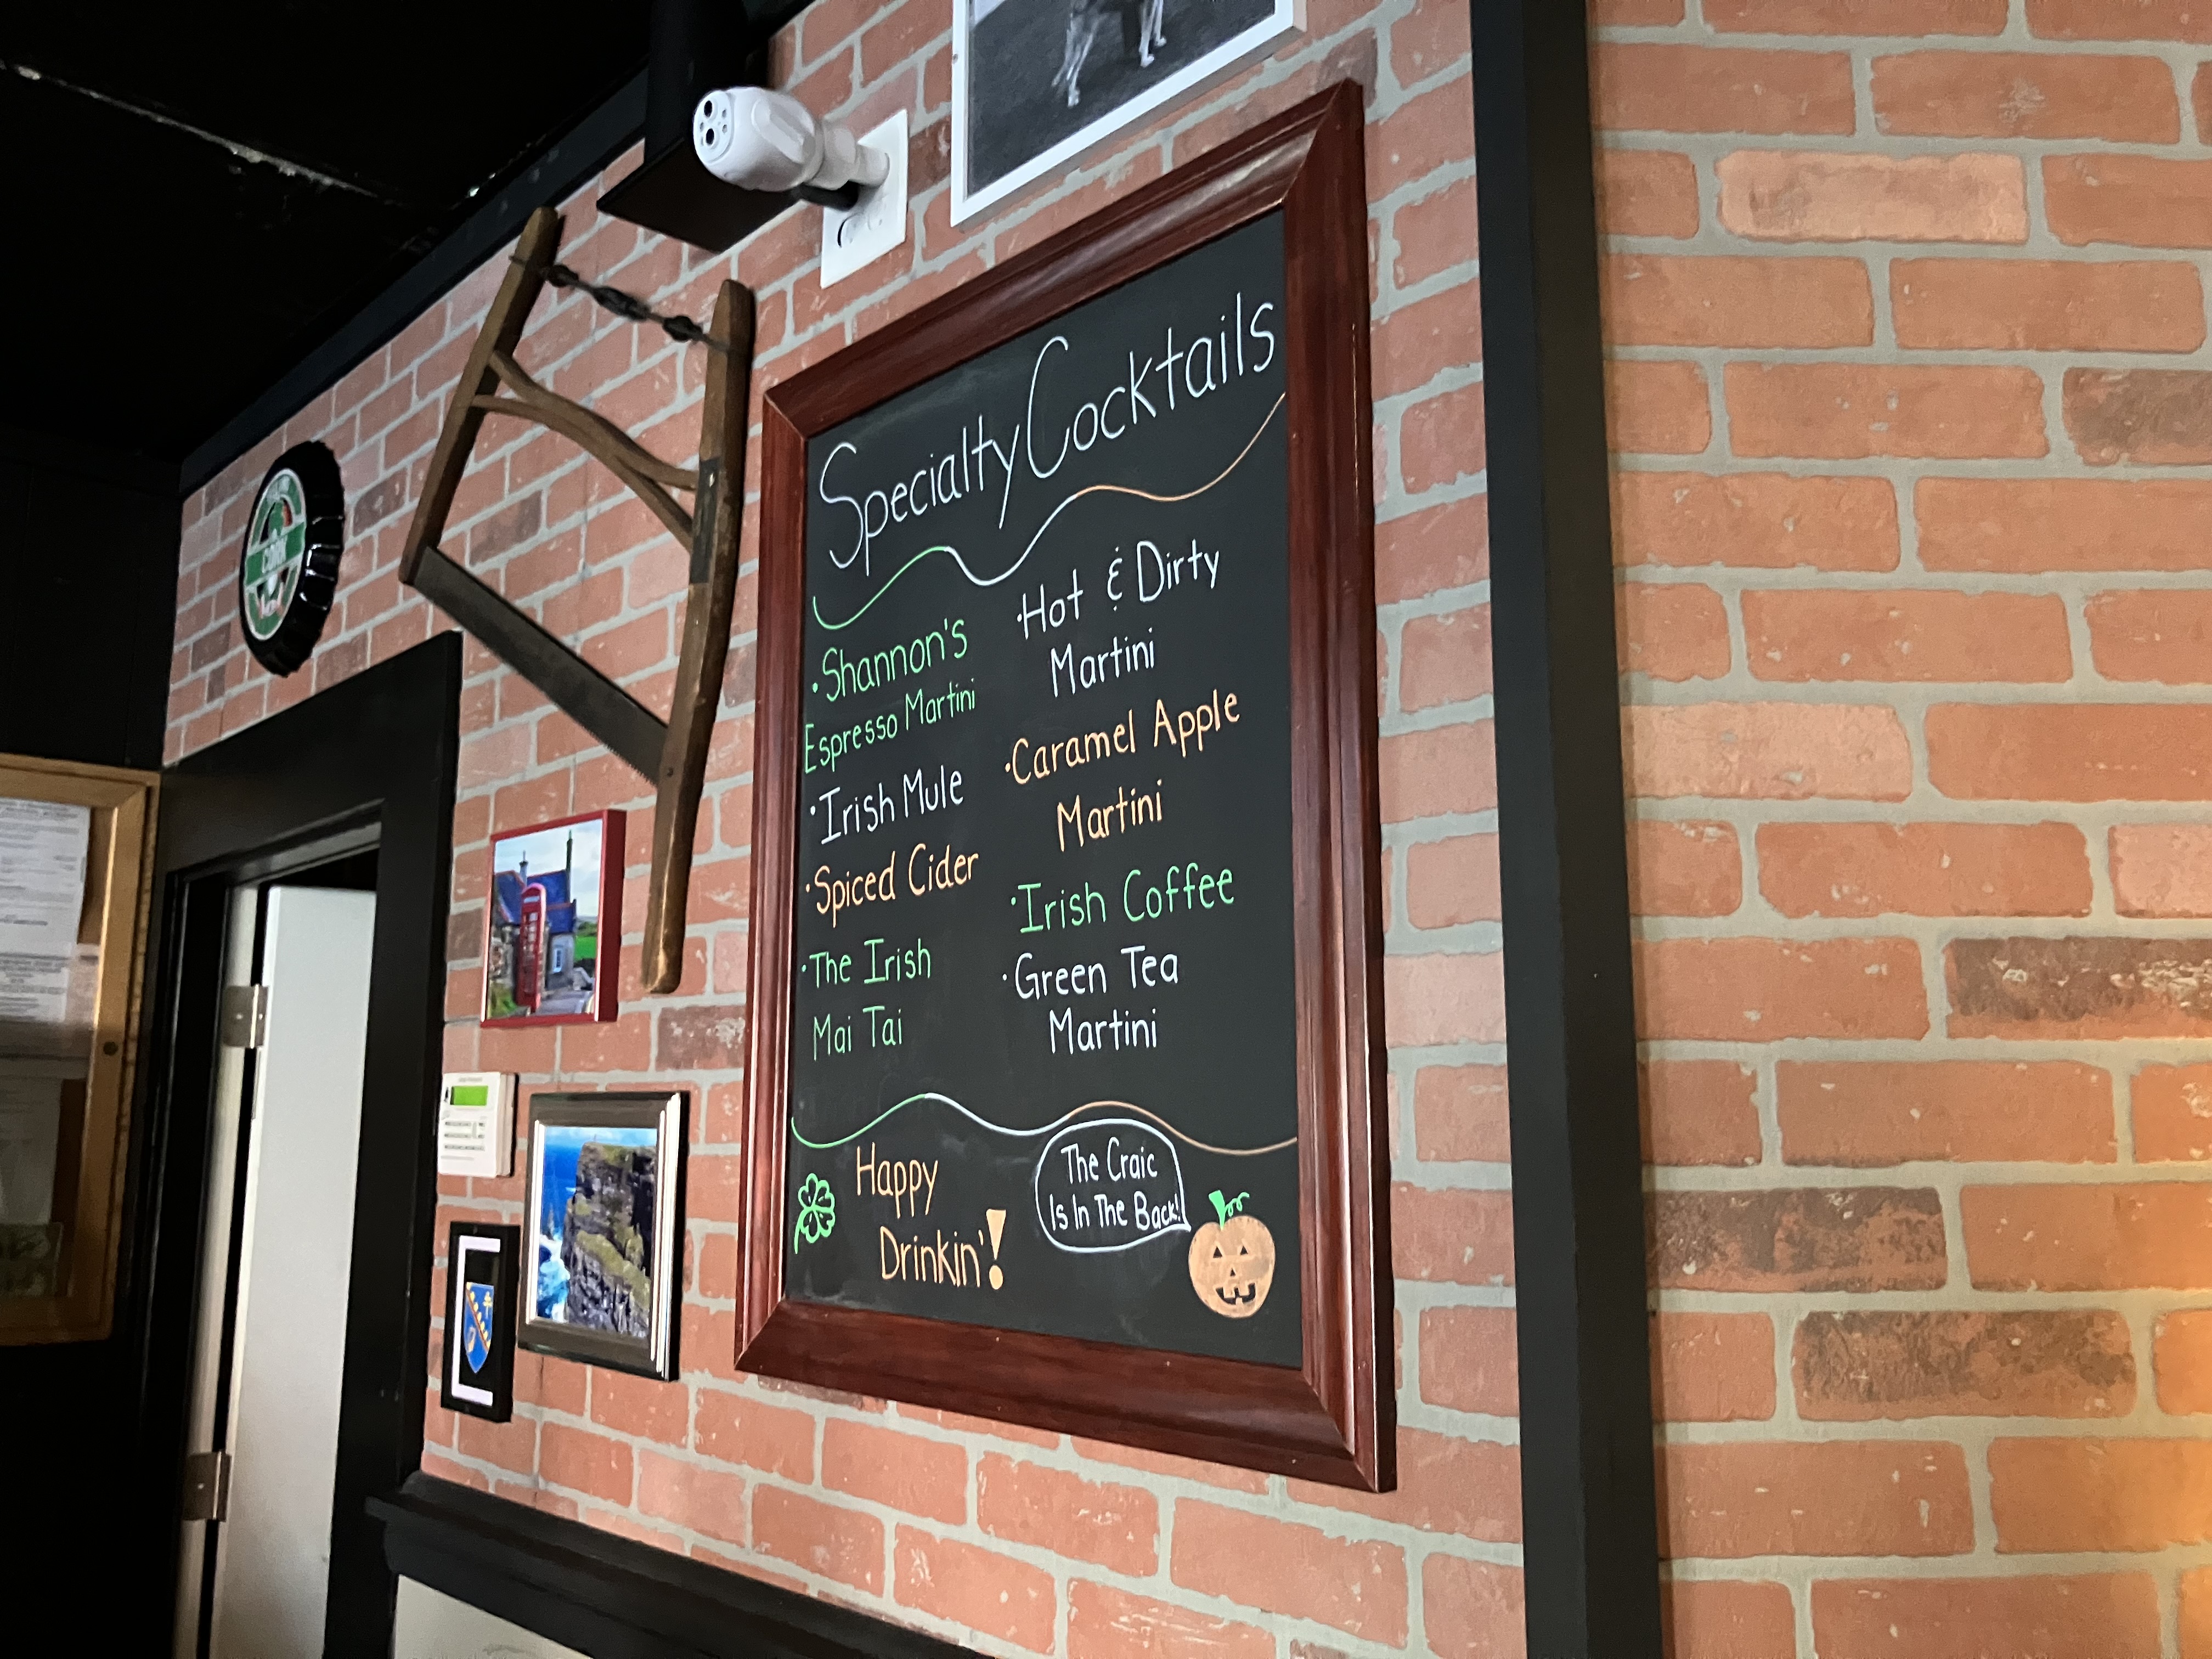 Specialty Cocktails
·Shannon's
Espresso Martini
·Irish Mule
·Spiced Cider
·The Irish
Mai Tai
·Hot & Dirty
Martini
·Caramel Apple
Martini
·Irish Coffee
·Green Tea
Martini
Happy
Drinkin'!
The Craic
Is In The Back!